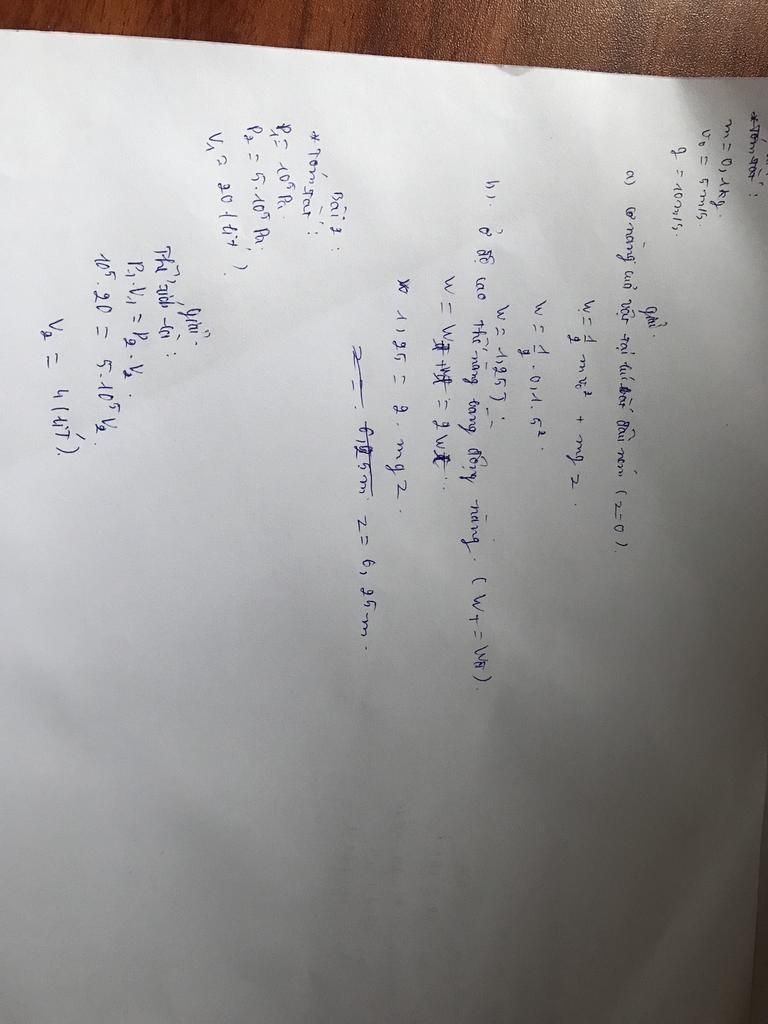 * Tóm tắt:
m = 0,1 kg.
v₀ = 5 m/s.
g = 10 m/s.
Giải.
a) Cơ năng của vật tại lúc bắt đầu ném (z=0).
W = 1/2 mv₀² + mgz.
W = 1/2 . 0,1 . 5².
W = 1,25 J
b). Ở độ cao thế năng bằng động năng. (Wt = Wđ).
W = Wđ + Wt = 2Wt.
1,25 = 2. mgz.
z = 6,25m.
Bài 2:
* Tóm tắt:
P₁ = 10⁵ Pa.
P₂ = 5.10⁵ Pa.
V₁ = 20 (lít).
Giải:
P₁.V₁ = P₂.V₂.
10⁵.20 = 5.10⁵ V₂.
V₂ = 4 (lít).